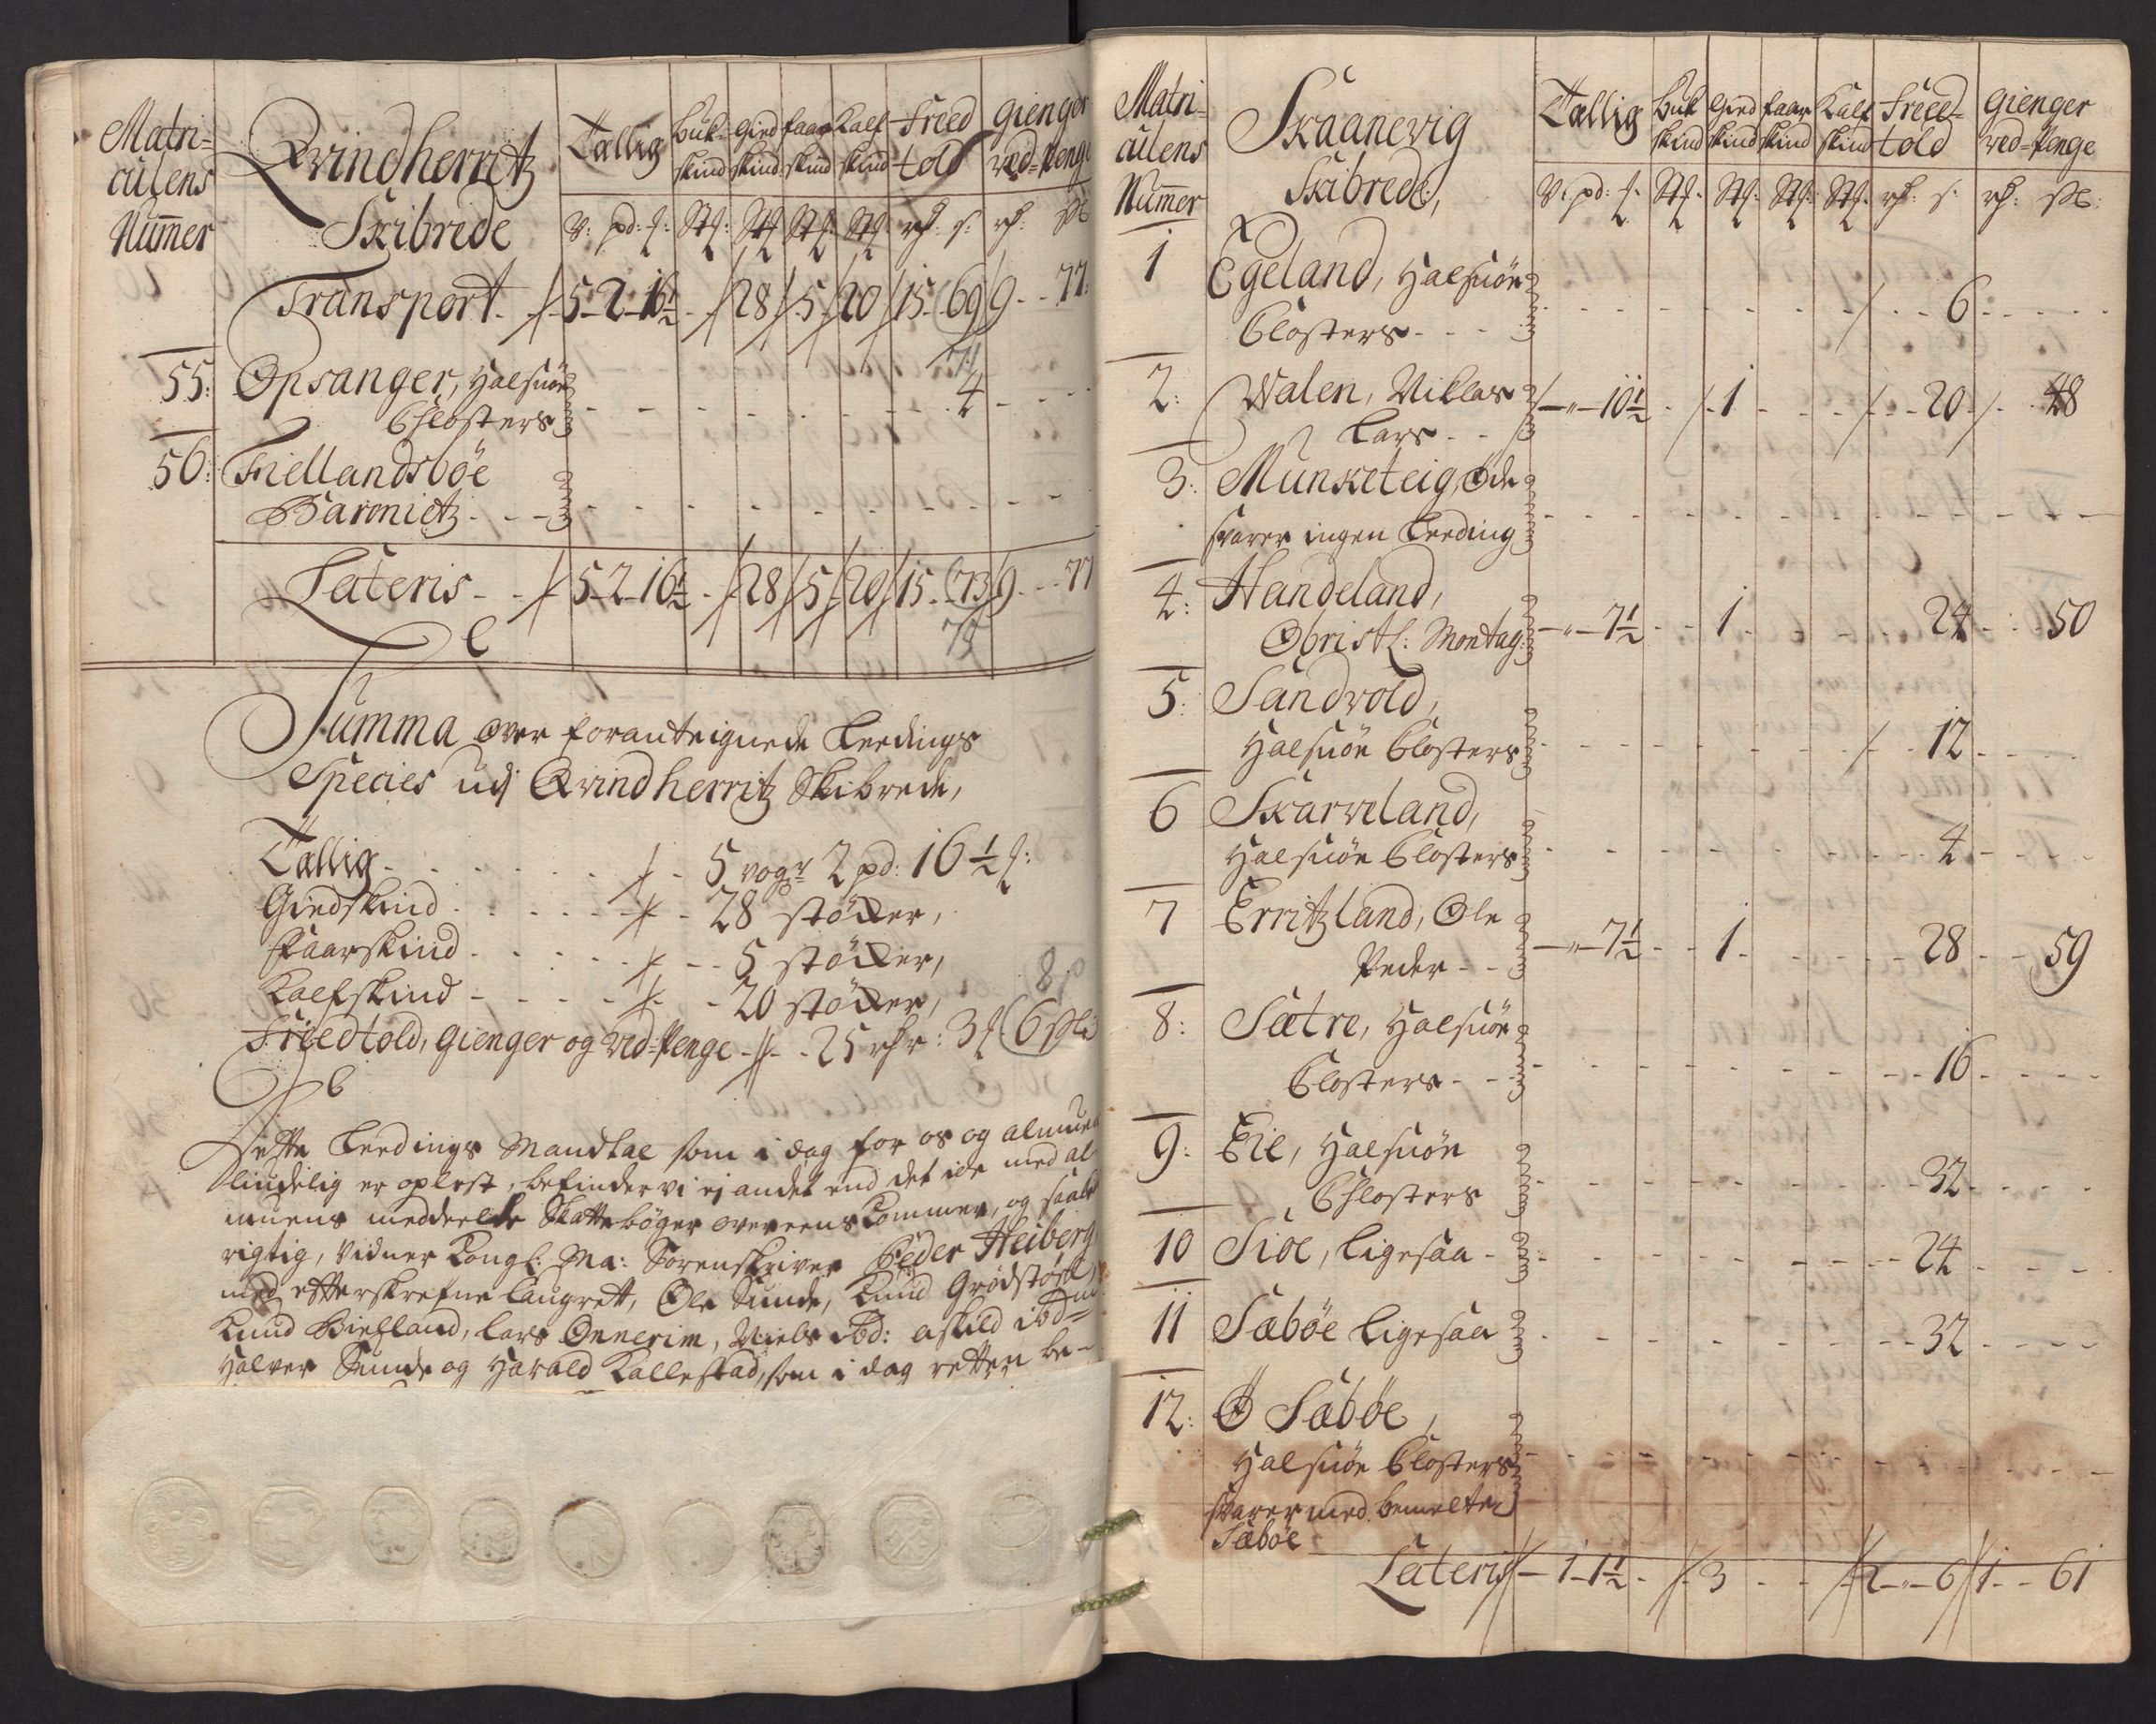 Matri=
culens
Nummer
Qvindherritz
Skibrede
Tallig
Buk=
skind
Gied
skind
faar
skind
Kalf
skind
Fried
told
gienger
ved=Penge
V: pd: f: Stf: Stf: Stf: Stf: rf: s: rf:
Transport 5-2-16½ 28 5 20 15 69 9 77
71
55: Opsanger, Halsnöe 4
Closters
56: Fiellandsböe
Baroniets
Lateris 5-2-16½ 28 5 20 15 73 9 77
75
Summa over foranteignede Leedings
Species udj Qvindherritz Skibrede,
Tallig 5 vogr 2 pd: 16½ f:
Giedskind 28 stöcker,
Faarskind 5 stöcker,
Kalfskind 20 stöcker,
Friedtold, gienger og ved=Penge 25 rhr: 3 f 6
8
Dette Leedings Mandtal som i dag for os og almuen
lindelig er oplest, befinder vi ej andet end det jo med al
muens meddeelte Skattebøger overeens kommer, og saaled
rigtig, Vidner Kongl: Ma: Sorenskriver Peder Heiberg,
med effterskrefne laugrett, Ole Sunde, Knud Grödstöel,
Knud Bielland, Lars Ønnerim, Niels ibd: Askild ibd=
Halver Sunde og Harald Kallestad, som i dag retten be-
Matri=
culens
Nummer
Skaanevig
Skibrede,
Tallig
Buk
skind
Gied
skind
faar
skind
Kalf
skind
Fried=
told
Gienger
ved=Penge
V: pd: f: Stf: Stf: Stf: Stf: rf: s: rf:
1 Egeland, Halsnöe 6
Closters
2: Walen, Niklas 10½ 1 20 48
Lars
3: Munketeig, Øde
svarer ingen Leeding
4: Handeland, 7½ 1 24 50
Obristl: Montag:
5: Sandvold, 12
Halsnöe Closters
6 Skarveland, 4
Halsnöe Closters
7 Erritzland, Ole 7½ 1 28 59
Peder
8: Sætre, Halsnöe 16
Closters
9: Eie, Halsnöe 32
Closters
10 Siöe, ligesaa 24
11 Sæböe ligesaa 32
12: Ø Sæböe,
Halsnöe Closters
svarer med bemelte
Sæböe
Lateris 1-1½ 3 2 6 1 61